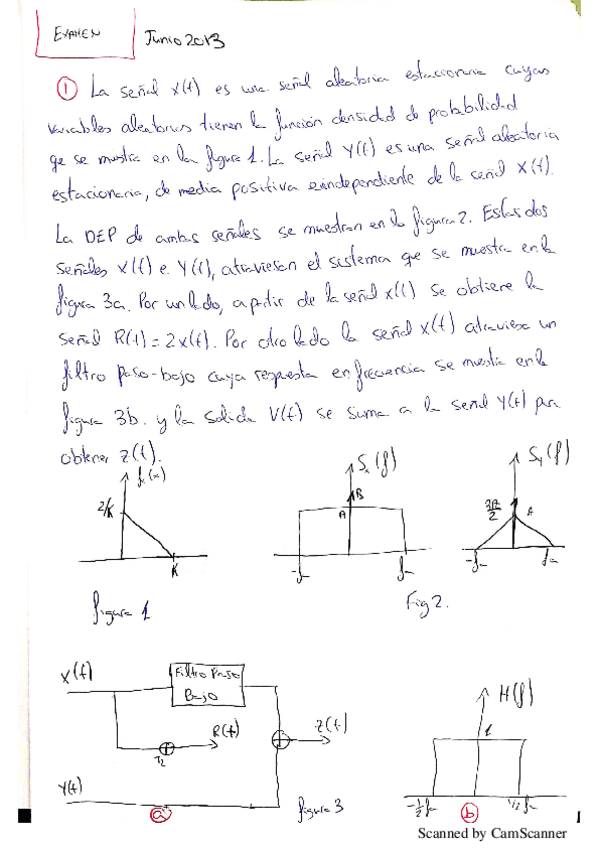 EXAMEN
Junio 2013
① La señal x(t) es una señal aleatoria estacionaria cuyas
variables aleatorias tienen la función densidad de probabilidad
qe se muestra en la figura 1. La señal Y(t) es una señal aleatoria
estacionaria, de media positiva e independiente de la señal X(t).
La DEP de ambas señales se muestran en la figura 2. Estas dos
señales X(t) e Y(t), atraviesan el sistema que se muestra en la
figura 3a. Por un lado, a partir de la señal x(t) se obtiene la
señal R(t) = 2x(t). Por otro lado la señal x(t) atraviesa un
filtro paso-bajo cuya respuesta en frecuencia se muestra en la
figura 3b. y la salida V(t) se suma a la señal Y(t) para
obtener z(t).
2/K
K
figura 1
Sx(f)
B
A
-fm
fm
Fig 2.
Sy(f)
A
X(t)
Filtro Paso
Bajo
R(t)
Z(t)
Y(t)
a
figura 3
H(f)
1
-1/2 fm
b
1/2 fm
Scanned by CamScanner